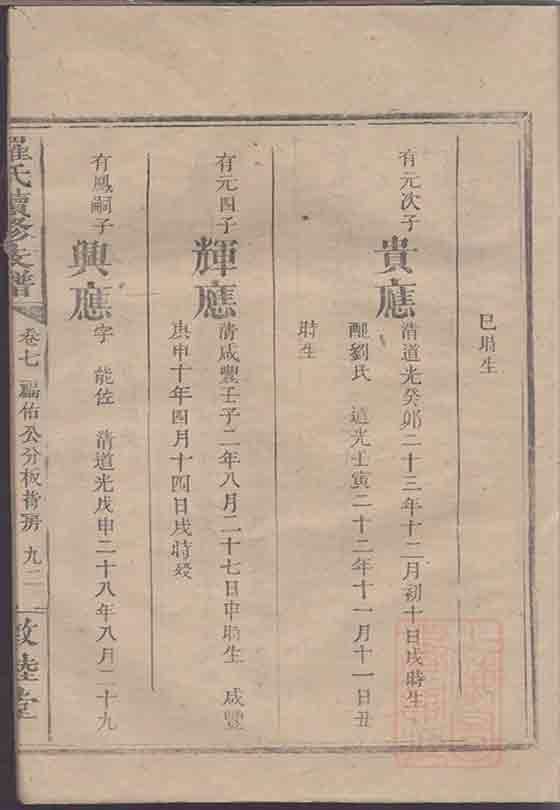 巳時生
有元次子
貴應
清道光癸卯二十三年十二月初十日戌時生
配劉氏 道光壬寅二十二年十一月十一日丑
時生
有元四子
輝應
清咸豐壬子二年八月二十七日申時生 咸豐
庚申十年四月十四日戌時歿
有鳳嗣子
興應
字 能佐 清道光戊申二十八年八月二十九
羅氏續修支譜
卷七 福佑公分板背房 九二
敦睦堂